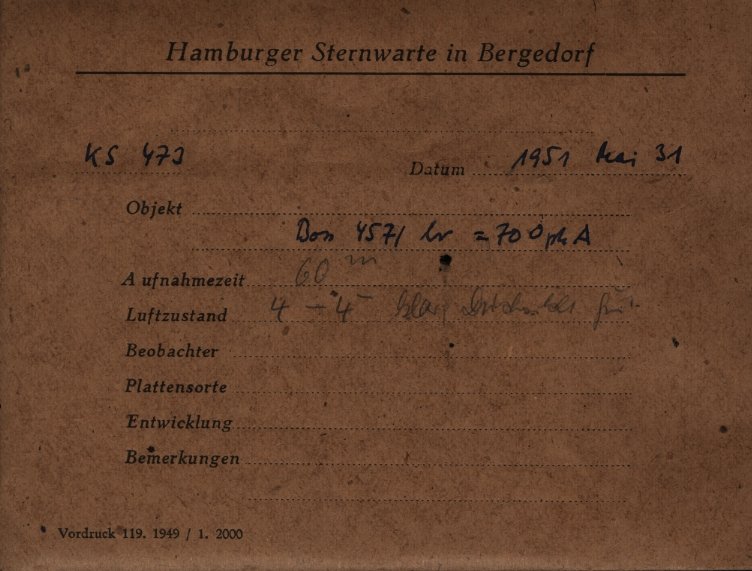 Hamburger Sternwarte in Bergedorf
KS 473
Datum 1951 Mai 31
Objekt
Boss 4571 = 70 Oph A
Aufnahmezeit 60 m
Luftzustand 4 - 4 - klar
Beobachter
Plattensorte
Entwicklung
Bemerkungen
Vordruck 119. 1949 / 1. 2000